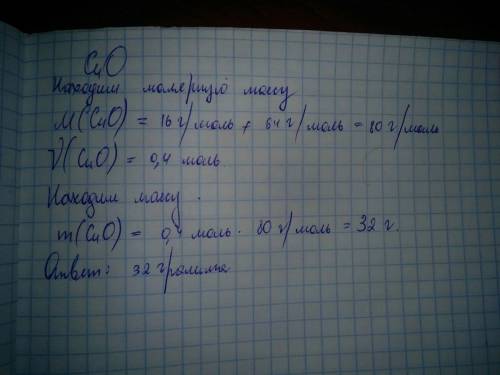 CuO
Находим молярную массу
M(CuO) = 16 г/моль + 64 г/моль = 80 г/моль
ν(CuO) = 0,4 моль.
Находим массу.
m(CuO) = 0,4 моль · 80 г/моль = 32 г.
Ответ: 32 грамма